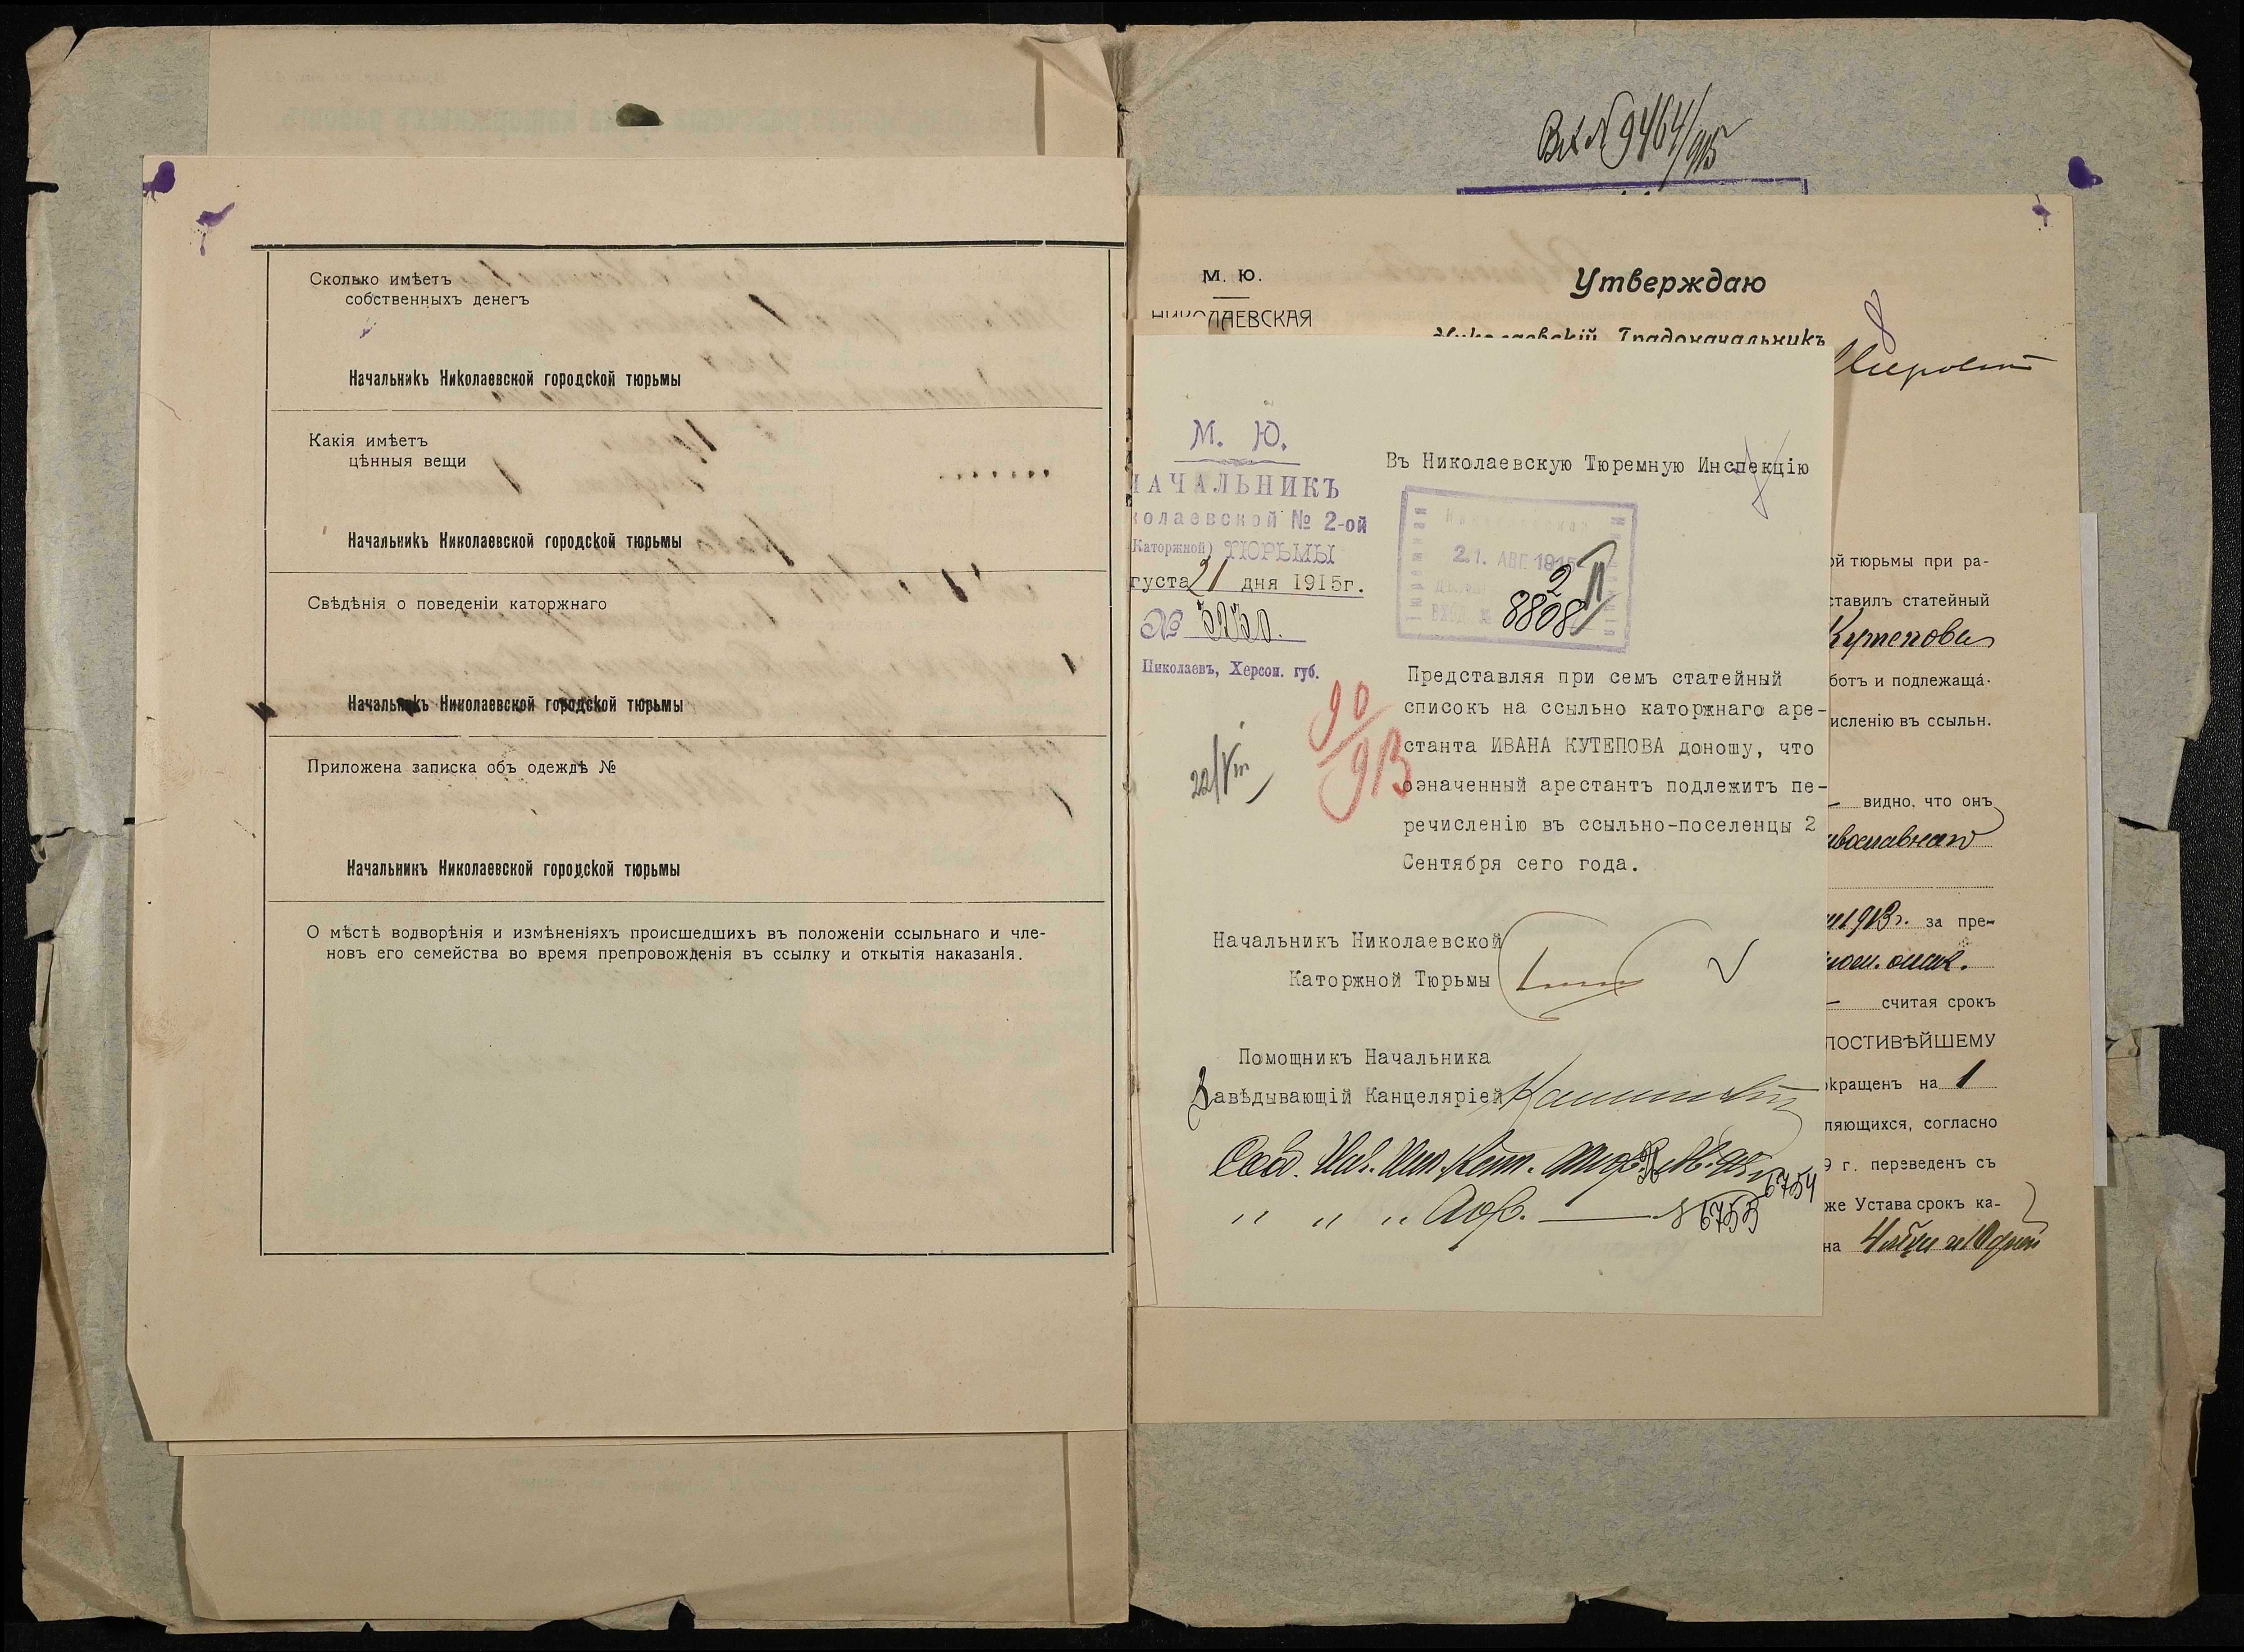 Сколько имѣетъ
собственныхъ денегъ
Начальникъ Николаевской городской тюрьмы
Какія имѣетъ
цѣнныя вещи
Начальникъ Николаевской городской тюрьмы
Свѣдѣнія о поведеніи каторжнаго
Начальникъ Николаевской городской тюрьмы
Приложена записка объ одеждѣ №
Начальникъ Николаевской городской тюрьмы
О мѣстѣ водворѣнія и измѣненіяхъ происшедшихъ въ положеніи ссыльнаго и чле-
новъ его семейства во время препровожденія въ ссылку и открытія наказанія.
Вх № 9464/915
М. Ю.
НИКОЛАЕВСКАЯ
Утверждаю
Николаевскій Градоначальникъ
М. Ю.
НАЧАЛЬНИКЪ
колаевской № 2-ой
(Каторжной) ТЮРЬМЫ
густа 21 дня 1915г.
№
Николаевъ, Херсон. губ.
Въ Николаевскую Тюремную Инспекцію
21. АВГ. 1915
8808
90/913
22/VIII
Представляя при семъ статейный
списокъ на ссыльно каторжнаго аре-
станта ИВАНА КУТЕПОВА доношу, что
означенный арестантъ подлежитъ пе-
речисленію въ ссыльно-поселенцы 2
Сентября сего года.
Начальникъ Николаевской
Каторжной Тюрьмы
Помощникъ Начальника
Завѣдывающій Канцеляріей
6754
" " "
6753
ой тюрьмы при ра-
ставилъ статейный
Кутепова
ботъ и подлежаща-
исленію въ ссыльн.
видно, что онъ
авославнаго
1913г. за пре-
считая срокъ
ЛОСТИВѢЙШЕМУ
окращенъ на 1
ляющихся, согласно
9 г. переведенъ съ
же Устава срокъ ка-
на 4 мѣс. и 10 дней